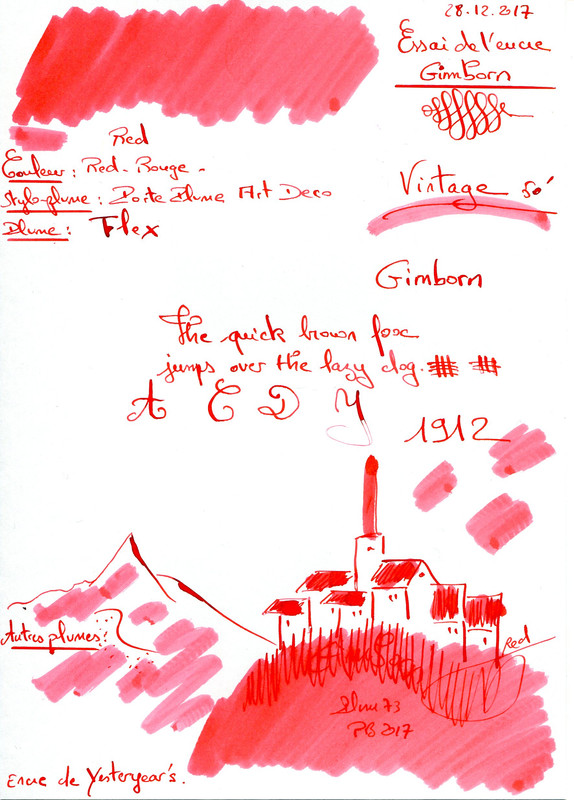 28.12.2017
Essai de l'encre
Gimborn
Red
Couleur : Red - Rouge -
Stylo-plume : Porte Plume Art Deco
Plume : Flex
Vintage 50'
Gimborn
The quick brown fox
jumps over the lazy dog.
A E D Y
1912
Autres plumes :
Red
Plume 73
PB 2017
Encre de Yesteryear's.